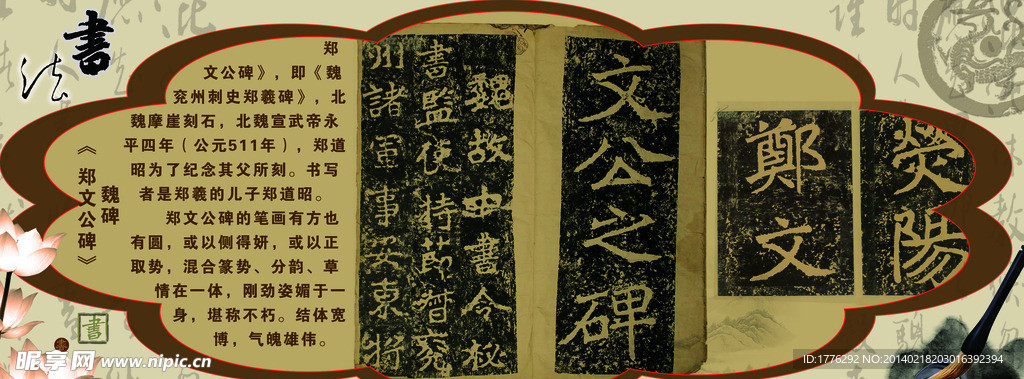 書法
魏碑
《郑文公碑》
郑
文公碑》，即《魏
兖州刺史郑羲碑》，北
魏摩崖刻石，北魏宣武帝永
平四年（公元511年），郑道
昭为了纪念其父所刻。书写
者是郑羲的儿子郑道昭。
郑文公碑的笔画有方也
有圆，或以侧得妍，或以正
取势，混合篆势、分韵、草
情在一体，刚劲姿媚于一
身，堪称不朽。结体宽
博，气魄雄伟。
荧陽
鄭文
文公之碑
魏故中書令秘
書監使持節督兖
州諸軍事安東將
書
昵享网 www.nipic.cn
ID:1776292 NO:20140218203016392394